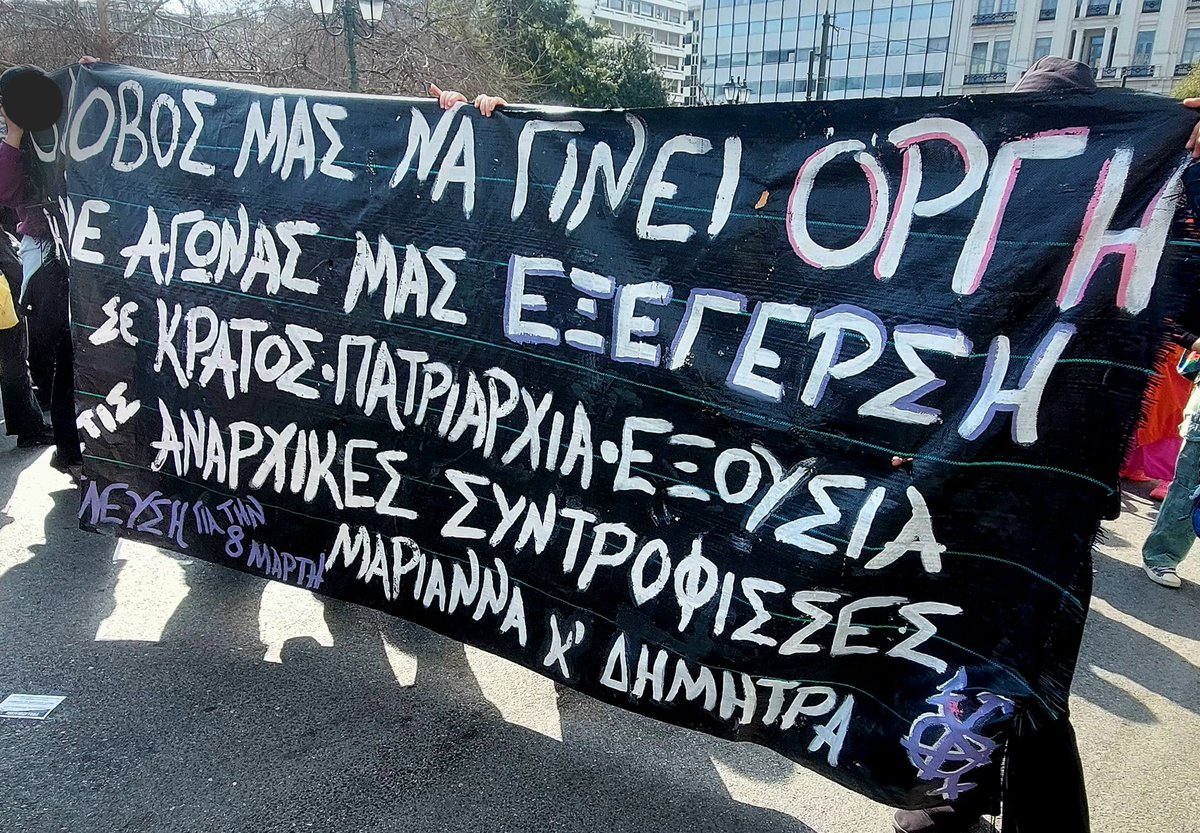 ΦΟΒΟΣ ΜΑΣ ΝΑ ΓΙΝΕΙ ΟΡΓΗ
ΑΓΩΝΑΣ ΜΑΣ ΕΞΕΓΕΡΣΗ
ΣΕ ΚΡΑΤΟΣ·ΠΑΤΡΙΑΡΧΙΑ·ΕΞΟΥΣΙΑ
ΤΙΣ ΑΝΑΡΧΙΚΕΣ ΣΥΝΤΡΟΦΙΣΣΕΣ
ΜΑΡΙΑΝΝΑ Κ' ΔΗΜΗΤΡΑ
ΛΕΥΣΗ ΓΙΑ ΤΗΝ
8 ΜΑΡΤΗ